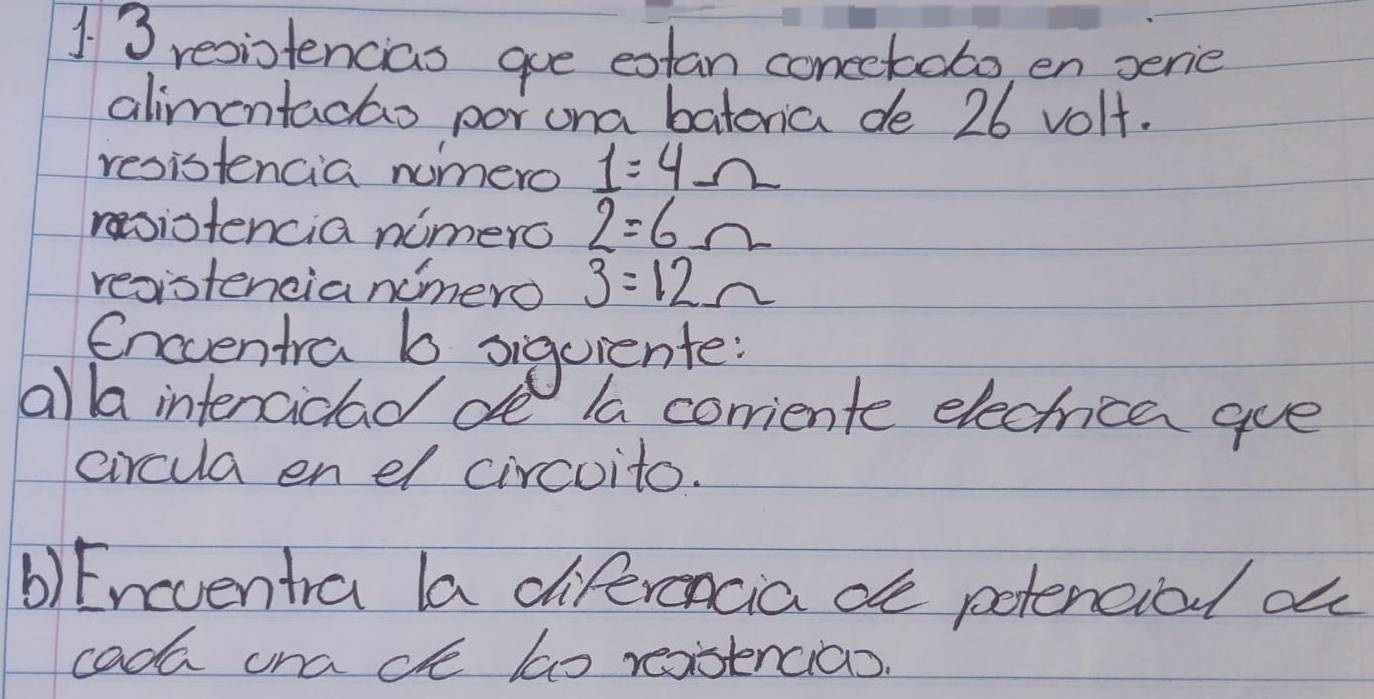 1. 3 resistencias que estan conectadas en serie
alimentadas por una bateria de 26 volt.
resistencia número 1=4Ω
resistencia número 2=6Ω
resistencia número 3=12Ω
Encuentra lo siguiente:
a) la intencidad de la corriente electrica que
circula en el circuito.
b) Encuentra la diferencia de potencial de
cada una de las resistencias.